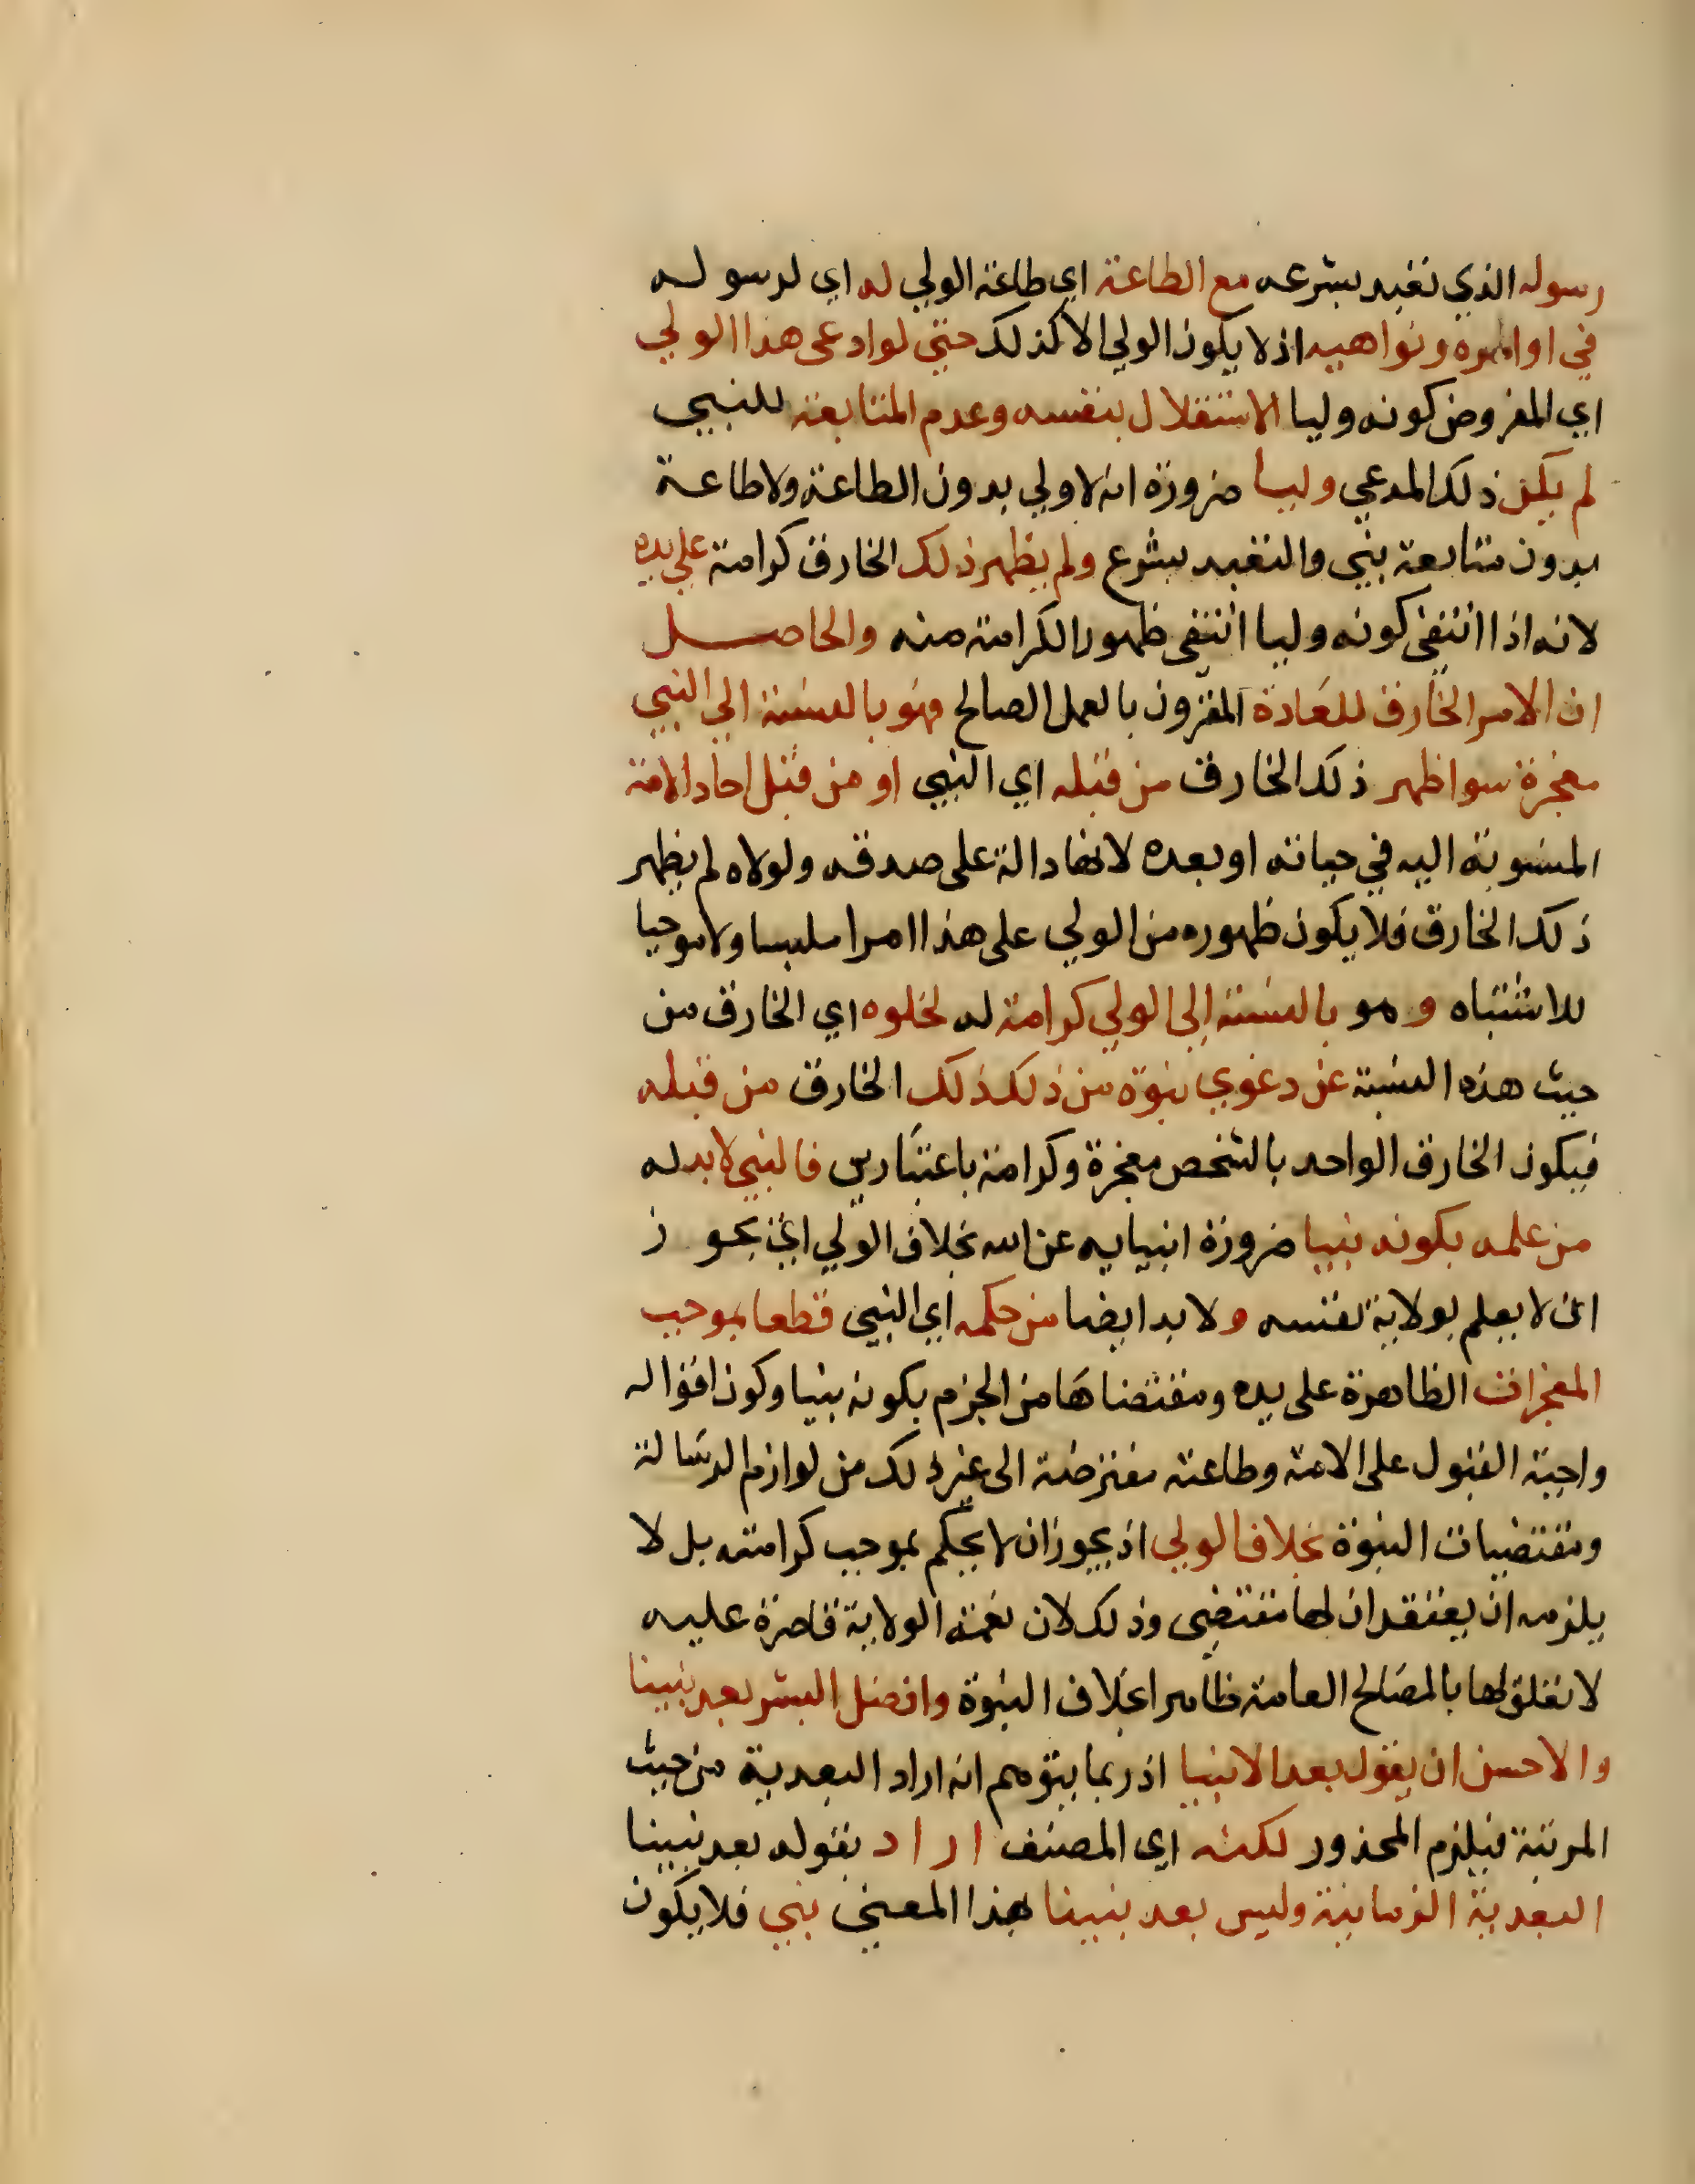 رسوله الذي تعبد بشرعه مع الطاعة اي طاعة الولي له اي لرسوله
في اوامره ونواهيه اذ لا يكون الولي الا كذلك حتى لو ادعى هذا الولي
اي المفروض كونه وليا الاستقلال بنفسه وعدم المتابعة للنبي
لم يكن ذلك المدعي وليا ضرورة انه لا ولي بدون الطاعة ولا طاعة
بدون متابعة نبي والتعبد بشرع ولم يظهر ذلك الخارق كرامة على يده
لانه اذا انتفى كونه وليا انتفى ظهور الكرامة منه والحاصل
ان الامر الخارق للعادة المقرون بالعمل الصالح فهو بالنسبة الى النبي
معجزة سوا ظهر ذلك الخارق من قبله اي النبي او من قبل احاد الامة
المنسوبة اليه في حياته او بعده لانها دالة على صدقه ولولاه لم يظهر
ذلك الخارق فلا يكون ظهوره من الولي على هذا امرا ملبسا ولا موجبا
للاشتباه وهو بالنسبة الى الولي كرامة له لخلوه اي الخارق من
حيث هذه النسبة عن دعوي نبوة من ذلك ذلك الخارق من قبله
فيكون الخارق الواحد بالشخص معجزة وكرامة باعتبارين فالنبي لا بد له
من علمه بكونه نبيا ضرورة انبيايه عن الله بخلاف الولي اي يجوز
ان لا يعلم بولاية نفسه ولا بد ايضا من حكمه اي النبي قطعا بموجب
المعجزات الظاهرة على يده ومقتضاها من الجزم بكونه نبيا وكون اقواله
واجبة القبول على الامة وطاعته مفترضة الى غير ذلك من لوازم الرسالة
ومقتضيات النبوة بخلاف الولي اذ يجوز ان لا يحكم بموجب كرامته بل لا
يلزمه ان يعتقد ان لها مقتضى وذلك لان نعمة الولاية قاصرة عليه
لا تعلق لها بالمصالح العامة ظاهرا بخلاف النبوة وافضل البشر بعد نبينا
والاحسن ان يقول بعد الانبيا اذ ربما يتوهم انه اراد البعدية من حيث
المرتبة فيلزم المحذور لكنه اي المصنف اراد بقوله بعد نبينا
البعدية الزمانية وليس بعد نبينا بهذا المعنى نبي فلا يكون